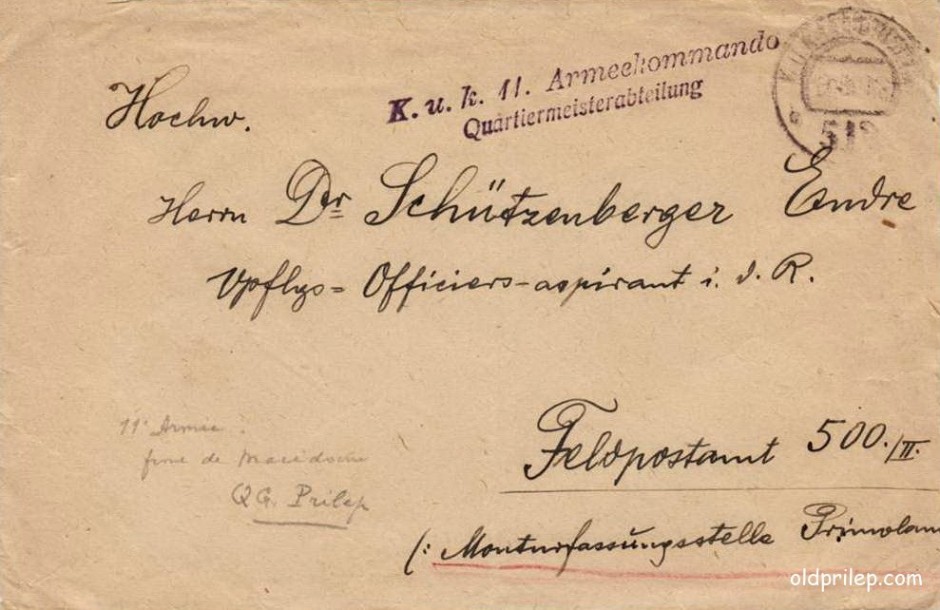 K. u. k. 11. Armeekommando
Quartiermeisterabteilung
Hochw.
Herrn Dr Schützenberger Endre
Vpflgs= Officiers-aspirant i. d. R.
11e Armée.
de Macédoine
QG. Prilep
Feldpostamt 500./II.
(: Monturfassungsstelle Primolano
oldprilep.com